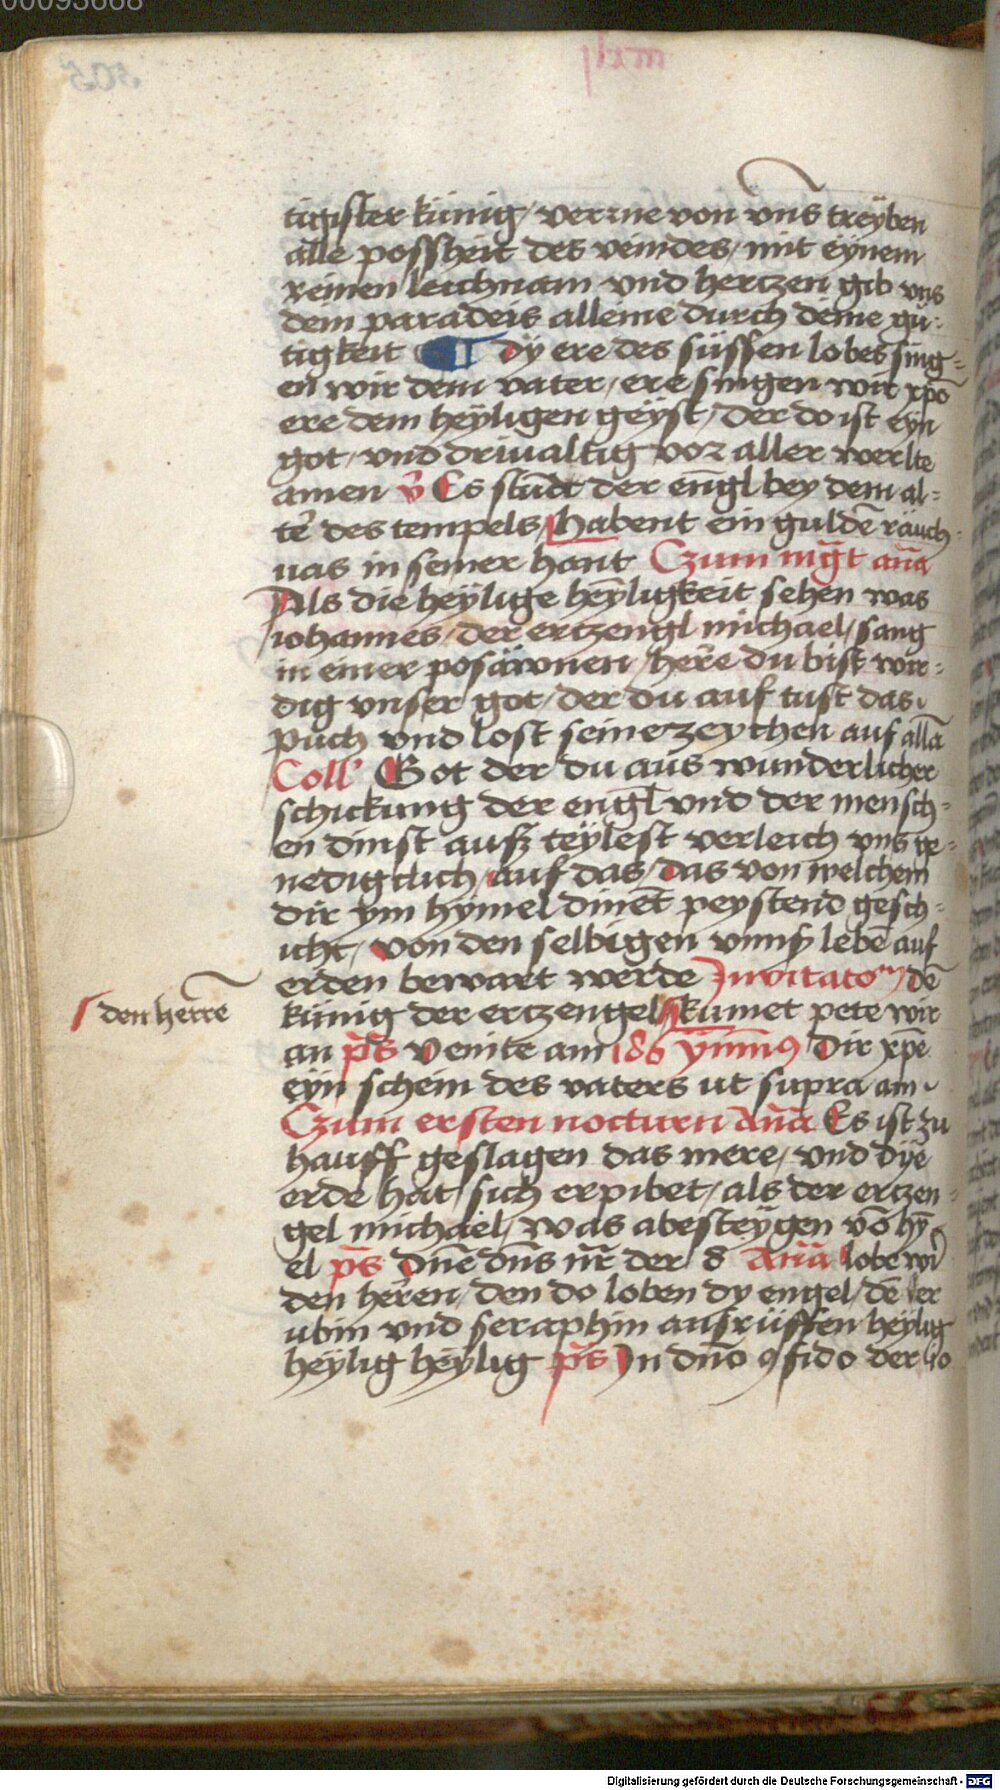 tigister künig / verrne von vns treyben
alle possheit des veindes / mit eynem
reinen leichnam vnd hertzen gib vns
dem paradeis alleine durch deine gü-
tigkeit dy ere des süssen lobes sing-
en wir dem vater / ere singen wir xpō
ere dem heyligen geyst / der do ist eyn
got / vnd drivaltig vor aller werlte
amen v̄ Es stūdt der engl bey dem al-
ter des tempels / Habent ein guldē räuch-
uas in seiner hant Czum mḡt an̄a
Als die heylige heyligkeit sehen was
iohannes / der ertzengl michael / sang
in einer posäwnen / herre du bist wir-
dig vnser got / der du auf tust das
puch vnd lost seine zeychen auf allā
Coll' Got der du aus wunderlicher
schickung der engl vnd der mensch-
en dinst auß teylest verleich vns ge-
nedigclich / auf das / das von welchem
dir ym hymel dinēt peystend gesch-
icht / von den selbigen vnnß lebē auf
erden bewart werde Invitato⁽ᵐ⁾ dē
den herrē
künig der ertzengel kumet pete wir
an p̄s Venite am ym̄nꝰ Dir xpē
eyn schein des vaters ut supra am
Czum ersten nocturn an̄a Es ist zu
hauff geslagen das mere / vnd dye
erde hat sich erpibet / als der ertzen-
gel michael / was abesteygen vō hȳ-
el p̄s Dn̄e dn̄s nr̄ der 8 An̄a lobe wi
den herren / den do loben dy engel / dē
ubin vnd seraphin ausrüffen heylig
heylig heylig p̄s In dn̄o ꝯfido der io
Digitalisierung gefördert durch die Deutsche Forschungsgemeinschaft - DFG